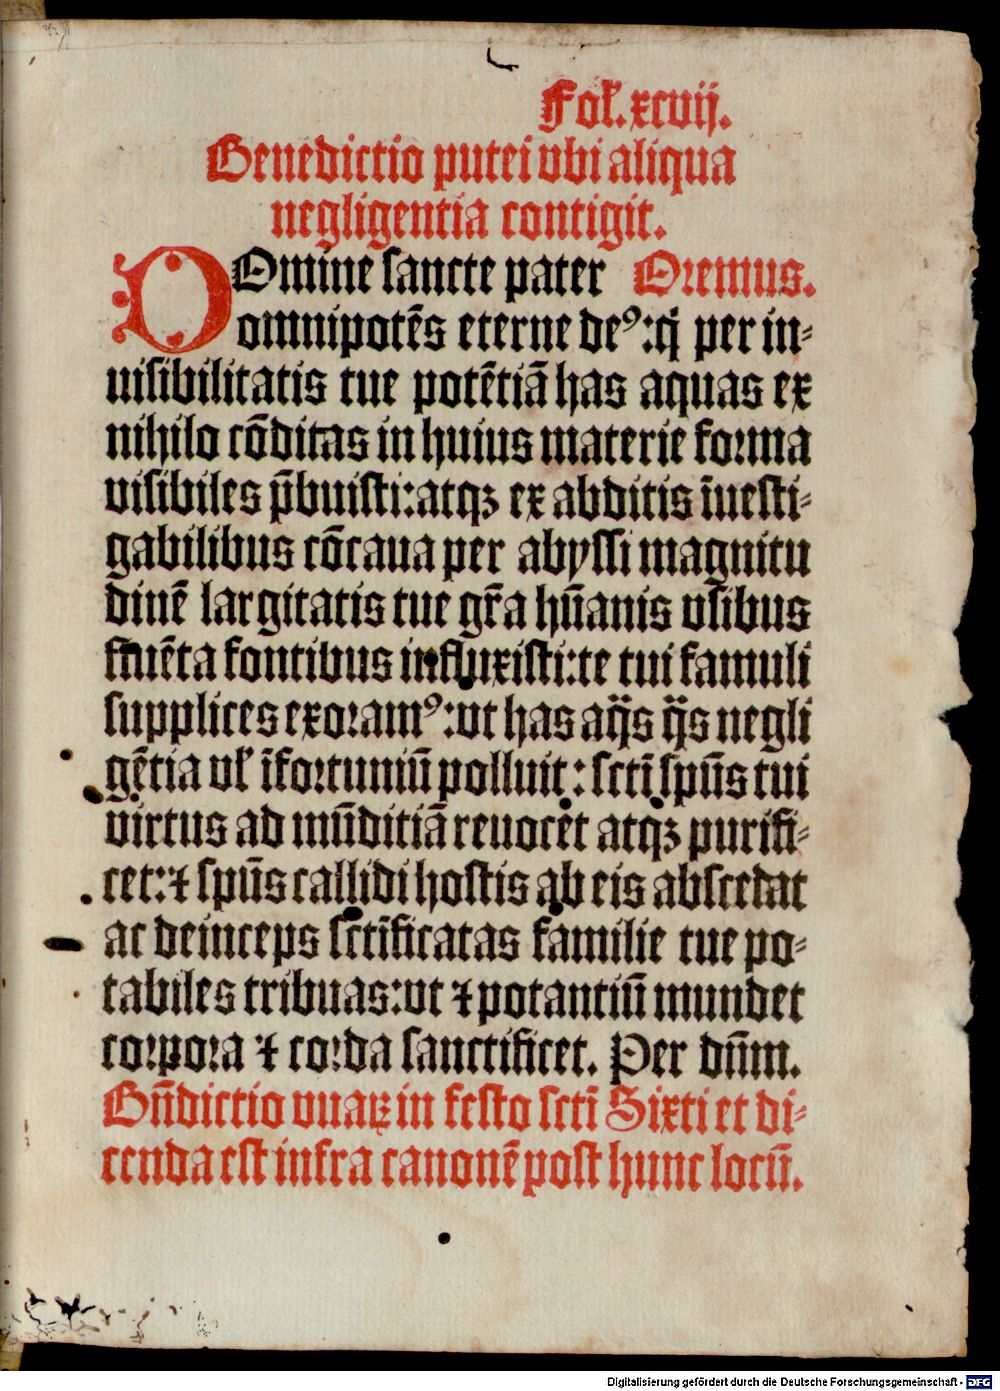 Fol. xcvij.
Benedictio putei vbi aliqua
negligentia contigit.
DOmine sancte pater Oremus.
omnipotēs eterne deꝰ: q̇ per in⸗
uisibilitatis tue potētiā has aquas ex
nihilo cōditas in huius materie forma
visibiles p̄buisti: atqꝫ ex abditis īuesti⸗
gabilibus cōcaua per abyssi magnitu
dinē largitatis tue gr̄a hūanis vsibus
fluēta fontibus influxisti: te tui famuli
supplices exoramꝰ: vt has aq̄s q̄s negli
gētia vl' īfortuniū polluit: scti spūs tui
virtus ad mūditiā reuocet atqꝫ purifi⸗
cet: ⁊ spūs callidi hostis ab eis abscedat
ac deinceps sctīficatas familie tue po⸗
tabiles tribuas: vt ⁊ potantiū mundet
corpora ⁊ corda sanctificet. Per dūm.
Bn̄dictio vuaꝝ in festo scti Sixti et di⸗
cenda est infra canonē post hunc locū.
Digitalisierung gefördert durch die Deutsche Forschungsgemeinschaft - DFG